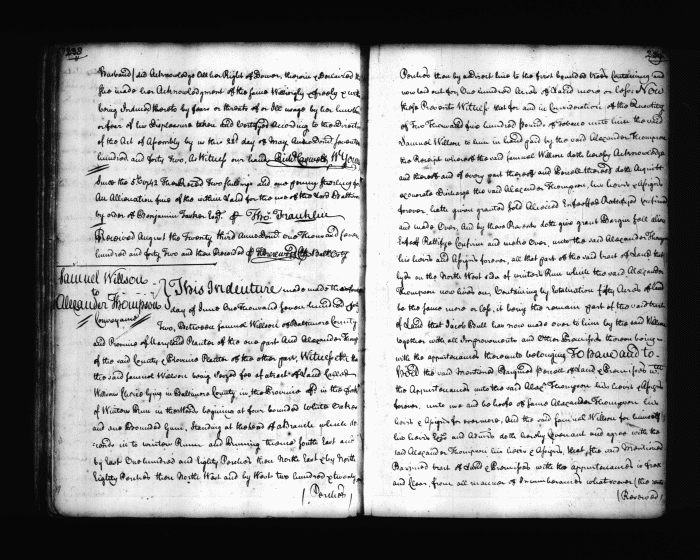 238
Husband) did Acknowledge all her Right of Dower, therein & Declared that
she made her Acknowledgment of the same Willingly & freely & without
being Induced thereto by fears or threats of or Ill usage by her husband
or fear of his Displeasure taken and Certifyed According to the Direction
of the Act of Assembly by us this 23d day of May Anno Domini seventeen
hundred and forty two, As Witness our hands
June the 5th 1742 Then Received Two shillings and one penny sterling for
An Alienation fine of the within Land for the use of the Lord Baltimore
by order of Benjamin Tasker Esqr Thos Franklin
Received August the Twenty third Anno Domini One Thousand seven
hundred and forty Two and then Recorded
Samuel Willson
to
Alexander Thompson
Conveyance
This Indenture made
day of June One Thousand seven hundred and forty
Two, Between Samuel Willson of Baltimore County
and Province of Maryland Planter of the one part And Alexander Thompson
of the said County & Province Planter of the other part, Witnesseth that
the said Samuel Willson being seized fee of a tract of Land Called
lying in Baltimore County in the Province on the
of Winters Run in the Woods begining at four bounded White Oakes
and one Bounded Gum, Standing at the head of a Branch which de-
-cends in to winters Runn and Running thence South East and
by East One hundred and Eighty Perches then North East & by North
Eighty Perches then North West and by West two hundred & twenty
(Perches)
Perches then by a Direct line to the first bounded trees Containing and
now laid out for One hundred Acres of Land more or less Now
these Presents Witness that for and in Consideration of the Quantity
of Two Thousand five hundred pounds of Tobacco unto him the said
Samuel Willson to him in hand paid by the said Alexander Thompson
the Receipt whereof the said Samuel Willson doth hereby Acknowledge
and thereof and of every part thereof and doth Acquit
Exonerate Discharge the said Alexander Thompson, his heirs & Assigns
forever, hath given granted sold Aliened Enfeoffed Ratifyed Confirmed
and made Over, And by these Presents doth give grant Bargin sell alien
Enfeoff Ratifye Confirm and make Over, unto the said Alexander Thompson
his heirs and Assigns forever, all that part of the said tract of Land that
lyes on the North West side of winters Run which the said Alexander
Thompson now lives on, Containing by Estimation fifty Acres of Land
be the same more or less, it being the remain part of the said tract
of Land that Jacob Bull has now made over to him by the said Willson
together with all Improvements and Other Premisses thereon being
with the appurtenances thereunto belonging To have and to
hold the said mentioned Bargined parcel of Land & Premisses with
the Appurtenances unto the said Alexr Thompson his heirs & Assigns
forever, unto use and behoofe of same Alexander Thompson his
heirs & Assigns for evermore, And the said Samuel Willson for himself
his heirs Exrs and Admrs doth hereby Covenant and agree with the
said Alexander Thompson his heirs & Assigns, that, the said mentioned
Bargined tract of Land & Premisses with the appurtenances is free
and Clear, from all manner of Incumberances what soever (the rents
(Reserved)